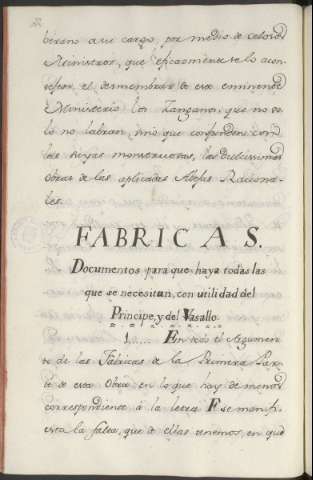 berano a su cargo, por medio de celosos
Ministros, que eficazmente se lo acon-
sejen, el desmembrar de este eminende
Ministerio los Zanganos, que no so-
lo no labran, sino que confunden con
las suyas monstruosas, las Dulcissimas
obras de las aplicadas Abejas Raciona-
les.
FABRICAS.
Documentos para que haya todas las
que se necesitan, con utilidad del
Principe, y del Vasallo.
1.... En todo el Argumen-
to de las Fabricas de la Primera Par-
te de esta Obra en lo que hay de menos
correspondiente à la letra F se mani-
fiesta la falta, que de ellas tenemos, en que